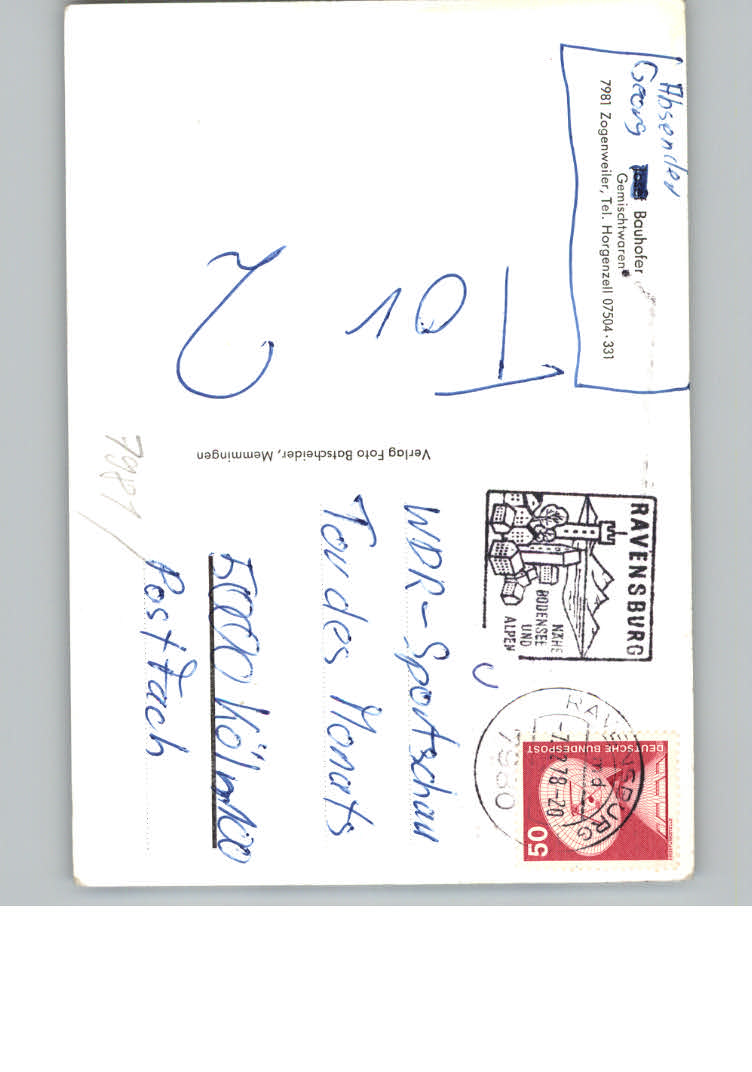 Absender
Georg Bauhofer
Gemischtwaren
7981 Zogenweiler, Tel. Horgenzell 07504 · 331
Tor
2
Verlag Foto Batscheider, Memmingen
RAVENSBURG
NÄHE
BODENSEE
UND
ALPEN
RAVENSBURG
78-20
7980
DEUTSCHE BUNDESPOST
50
WDR-Sportschau
Tor des Monats
5000 Köln 100
Postfach
7981/